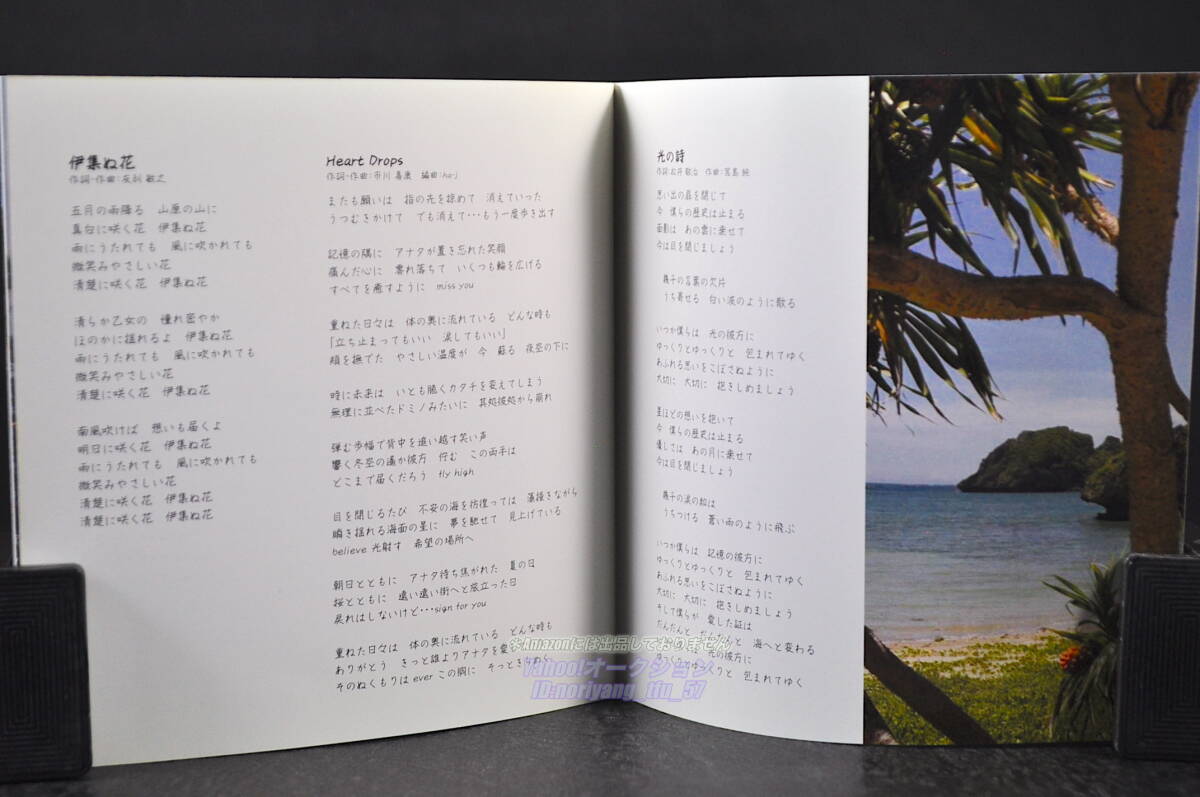 伊集ぬ花
作詞・作曲:友利 敏之
五月の雨降る 山原の山に
真白に咲く花 伊集ぬ花
雨にうたれても 風に吹かれても
微笑みやさしい花
清楚に咲く花 伊集ぬ花
清らか乙女の 憧れ密やか
ほのかに揺れるよ 伊集ぬ花
雨にうたれても 風に吹かれても
微笑みやさしい花
清楚に咲く花 伊集ぬ花
南風吹けば 想いも届くよ
明日に咲く花 伊集ぬ花
雨にうたれても 風に吹かれても
微笑みやさしい花
清楚に咲く花 伊集ぬ花
清楚に咲く花 伊集ぬ花
Heart Drops
作詞・作曲:市川 喜康 編曲:ha-j
またも願いは 指の先を掠めて 消えていった
うつむきかけて でも消えて・・・もう一度歩き出す
記憶の隅に アナタが置き忘れた笑顔
痛んだ心に 零れ落ちて いくつも輪を広げる
すべてを癒すように miss you
重ねた日々は 体の奥に流れている どんな時も
「立ち止まってもいい 涙してもいい」
頬を撫でた やさしい温度が 今 蘇る 夜空の下に
時に未来は いとも脆くカタチを変えてしまう
無理に並べたドミノみたいに 其処彼処から崩れ
弾む歩幅で背中を追い越す笑い声
響く冬空の遥か彼方 佇む この両手は
どこまで届くだろう fly high
目を閉じるたび 不安の海を彷徨っては 藻掻きながら
瞬き揺れる海面の星に 夢を馳せて 見上げている
believe 光射す 希望の場所へ
朝日とともに アナタ待ち焦がれた 夏の日
桜とともに 遠い遠い街へと旅立った日
戻れはしないけど・・・sign for you
重ねた日々は 体の奥に流れている どんな時も
ありがとう きっと誰よりアナタを愛
そのぬくもりは ever この胸に そっと
光の詩
作詞:松井 敬治 作曲:宮島 純
思い出の扉を閉じて
今 僕らの歴史は止まる
面影は あの雲に乗せて
今は目を閉じましょう
硝子の言葉の欠片
うち寄せる 白い波のように散る
いつか僕らは 光の彼方に
ゆっくりとゆっくりと 包まれてゆく
あふれる思いをこぼさぬように
大切に 大切に 抱きしめましょう
星ほどの想いを抱いて
今 僕らの歴史は止まる
優しさは あの月に乗せて
今は目を閉じましょう
硝子の涙の粒は
うちつける 蒼い雨のように飛ぶ
いつか僕らは 記憶の彼方に
ゆっくりとゆっくりと 包まれてゆく
あふれる思いをこぼさぬように
大切に 大切に 抱きしめましょう
そして僕らが 愛した証は
だんだんと だんだんと 海へと変わる
光の彼方に
ゆっくりと 包まれてゆく
＊Amazonには出品しておりません
Yahoo!オークション
ID:noriyang_ttu_57